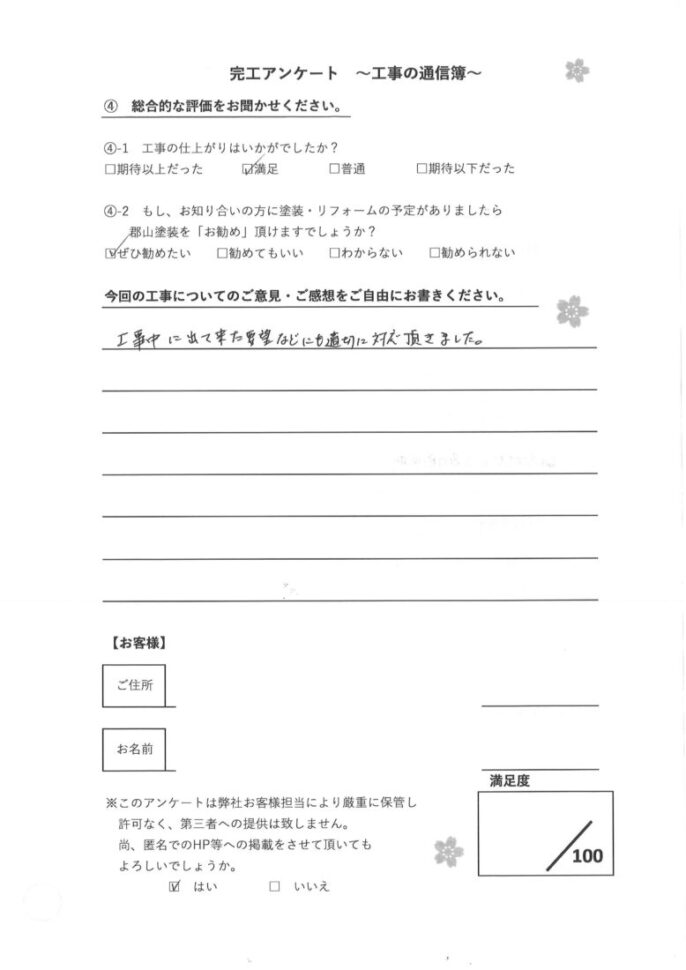 完工アンケート　～工事の通信簿～
④　総合的な評価をお聞かせください。
④-1　工事の仕上がりはいかがでしたか？
□期待以上だった　☑満足　□普通　□期待以下だった
④-2　もし、お知り合いの方に塗装・リフォームの予定がありましたら
郡山塗装を「お勧め」頂けますでしょうか？
☑ぜひ勧めたい　□勧めてもいい　□わからない　□勧められない
今回の工事についてのご意見・ご感想をご自由にお書きください。
工事中に出て来た要望などにも適切に対応頂きました。
【お客様】
ご住所
お名前
満足度
／100
※このアンケートは弊社お客様担当により厳重に保管し
許可なく、第三者への提供は致しません。
尚、匿名でのHP等への掲載をさせて頂いても
よろしいでしょうか。
☑　はい　□　いいえ